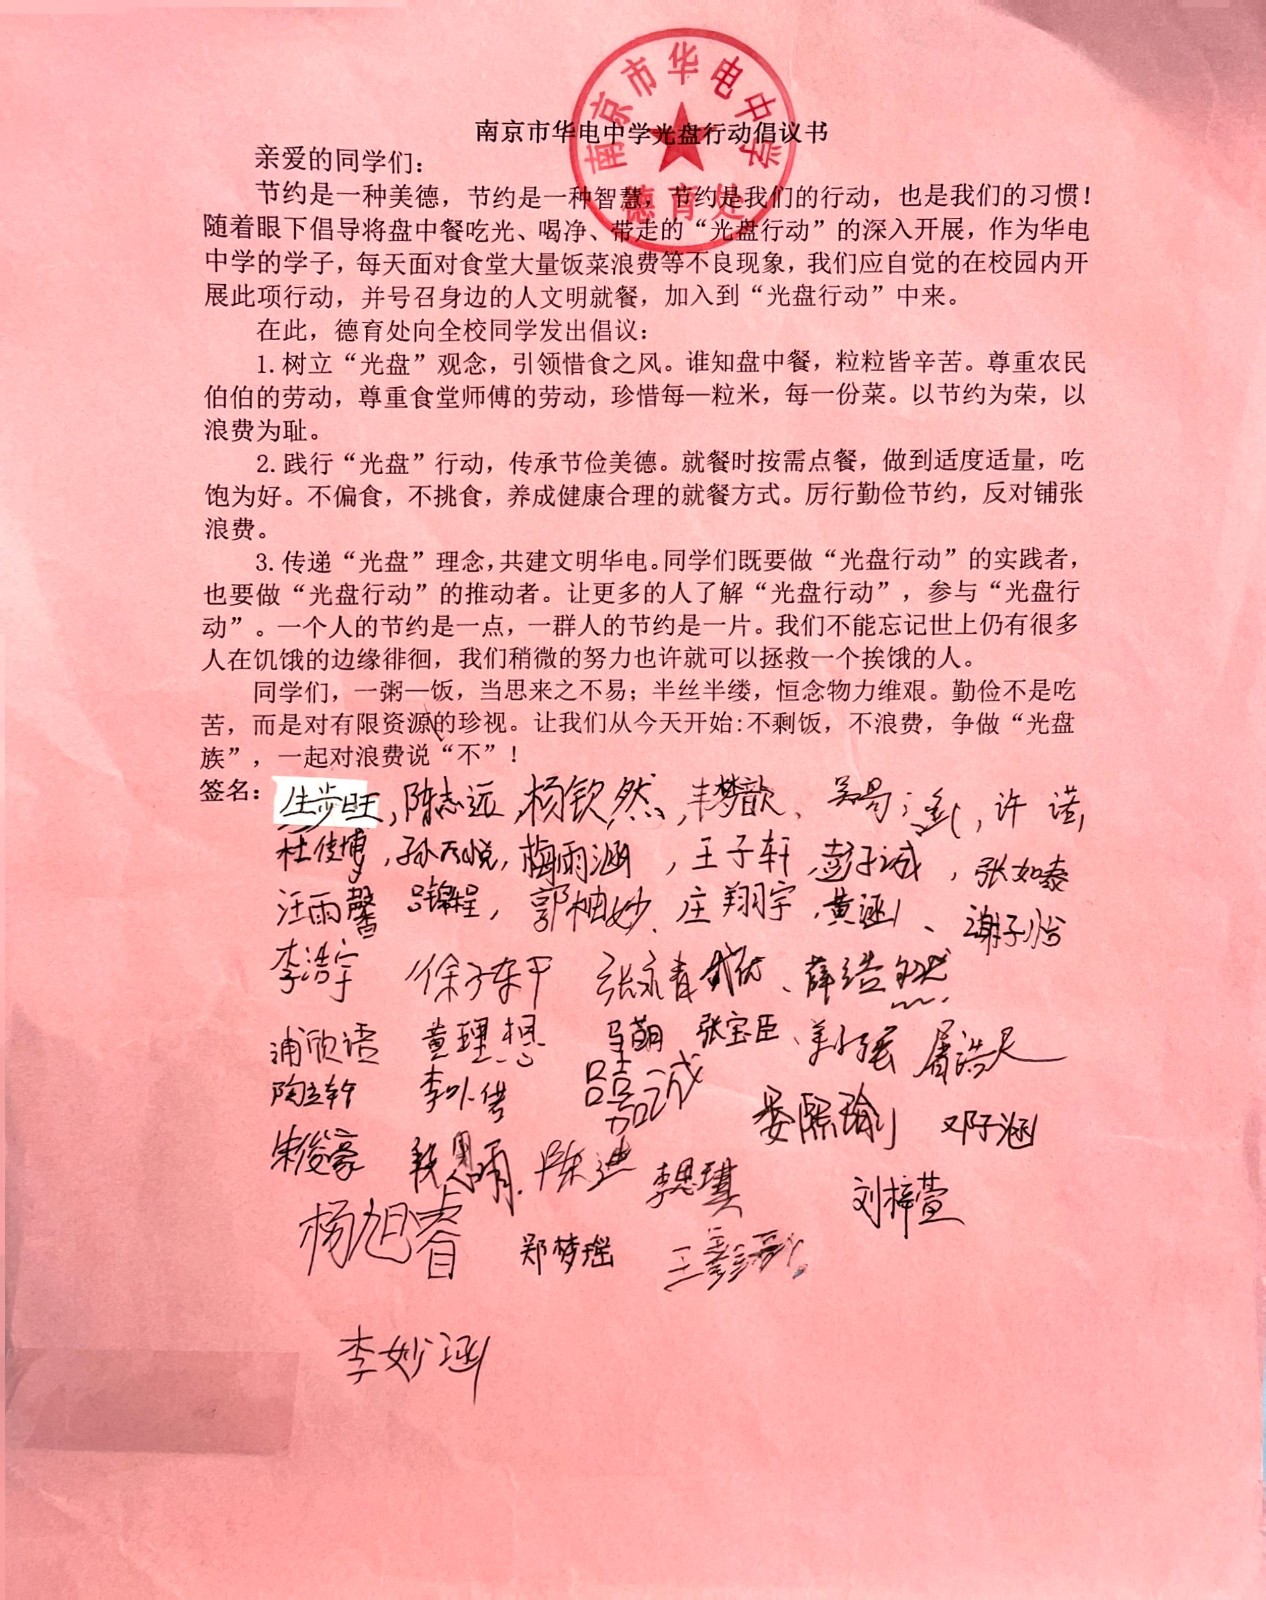 南京市华电中学
德育处
南京市华电中学光盘行动倡议书
亲爱的同学们：
节约是一种美德，节约是一种智慧，节约是我们的行动，也是我们的习惯！
随着眼下倡导将盘中餐吃光、喝净、带走的“光盘行动”的深入开展，作为华电
中学的学子，每天面对食堂大量饭菜浪费等不良现象，我们应自觉的在校园内开
展此项行动，并号召身边的人文明就餐，加入到“光盘行动”中来。
在此，德育处向全校同学发出倡议：
1.树立“光盘”观念，引领惜食之风。谁知盘中餐，粒粒皆辛苦。尊重农民
伯伯的劳动，尊重食堂师傅的劳动，珍惜每—粒米，每一份菜。以节约为荣，以
浪费为耻。
2.践行“光盘”行动，传承节俭美德。就餐时按需点餐，做到适度适量，吃
饱为好。不偏食，不挑食，养成健康合理的就餐方式。厉行勤俭节约，反对铺张
浪费。
3.传递“光盘”理念，共建文明华电。同学们既要做“光盘行动”的实践者，
也要做“光盘行动”的推动者。让更多的人了解“光盘行动”，参与“光盘行
动”。一个人的节约是一点，一群人的节约是一片。我们不能忘记世上仍有很多
人在饥饿的边缘徘徊，我们稍微的努力也许就可以拯救一个挨饿的人。
同学们，一粥—饭，当思来之不易；半丝半缕，恒念物力维艰。勤俭不是吃
苦，而是对有限资源的珍视。让我们从今天开始：不剩饭，不浪费，争做“光盘
族”，一起对浪费说“不”！
签名：生步旺，陈志远，杨钦然，丰梦歆、许诺，
杜佳博，孙天悦，梅雨涵，王子轩，彭子诚，张如泰
汪雨馨 吕锦程，郭柚妙、庄翔宇，黄涵、谢子怡
李浩宇 徐子东 张永青 薛浩
浦欣语 黄理想 马萌 张宝臣、姜小强 屠浩天
陶立轩 嘉诚 娄熙瑜 邓子涵
朱俊豪 陈进 李思琪 刘梓萱
杨旭睿 郑梦瑶 王鑫
李妙涵